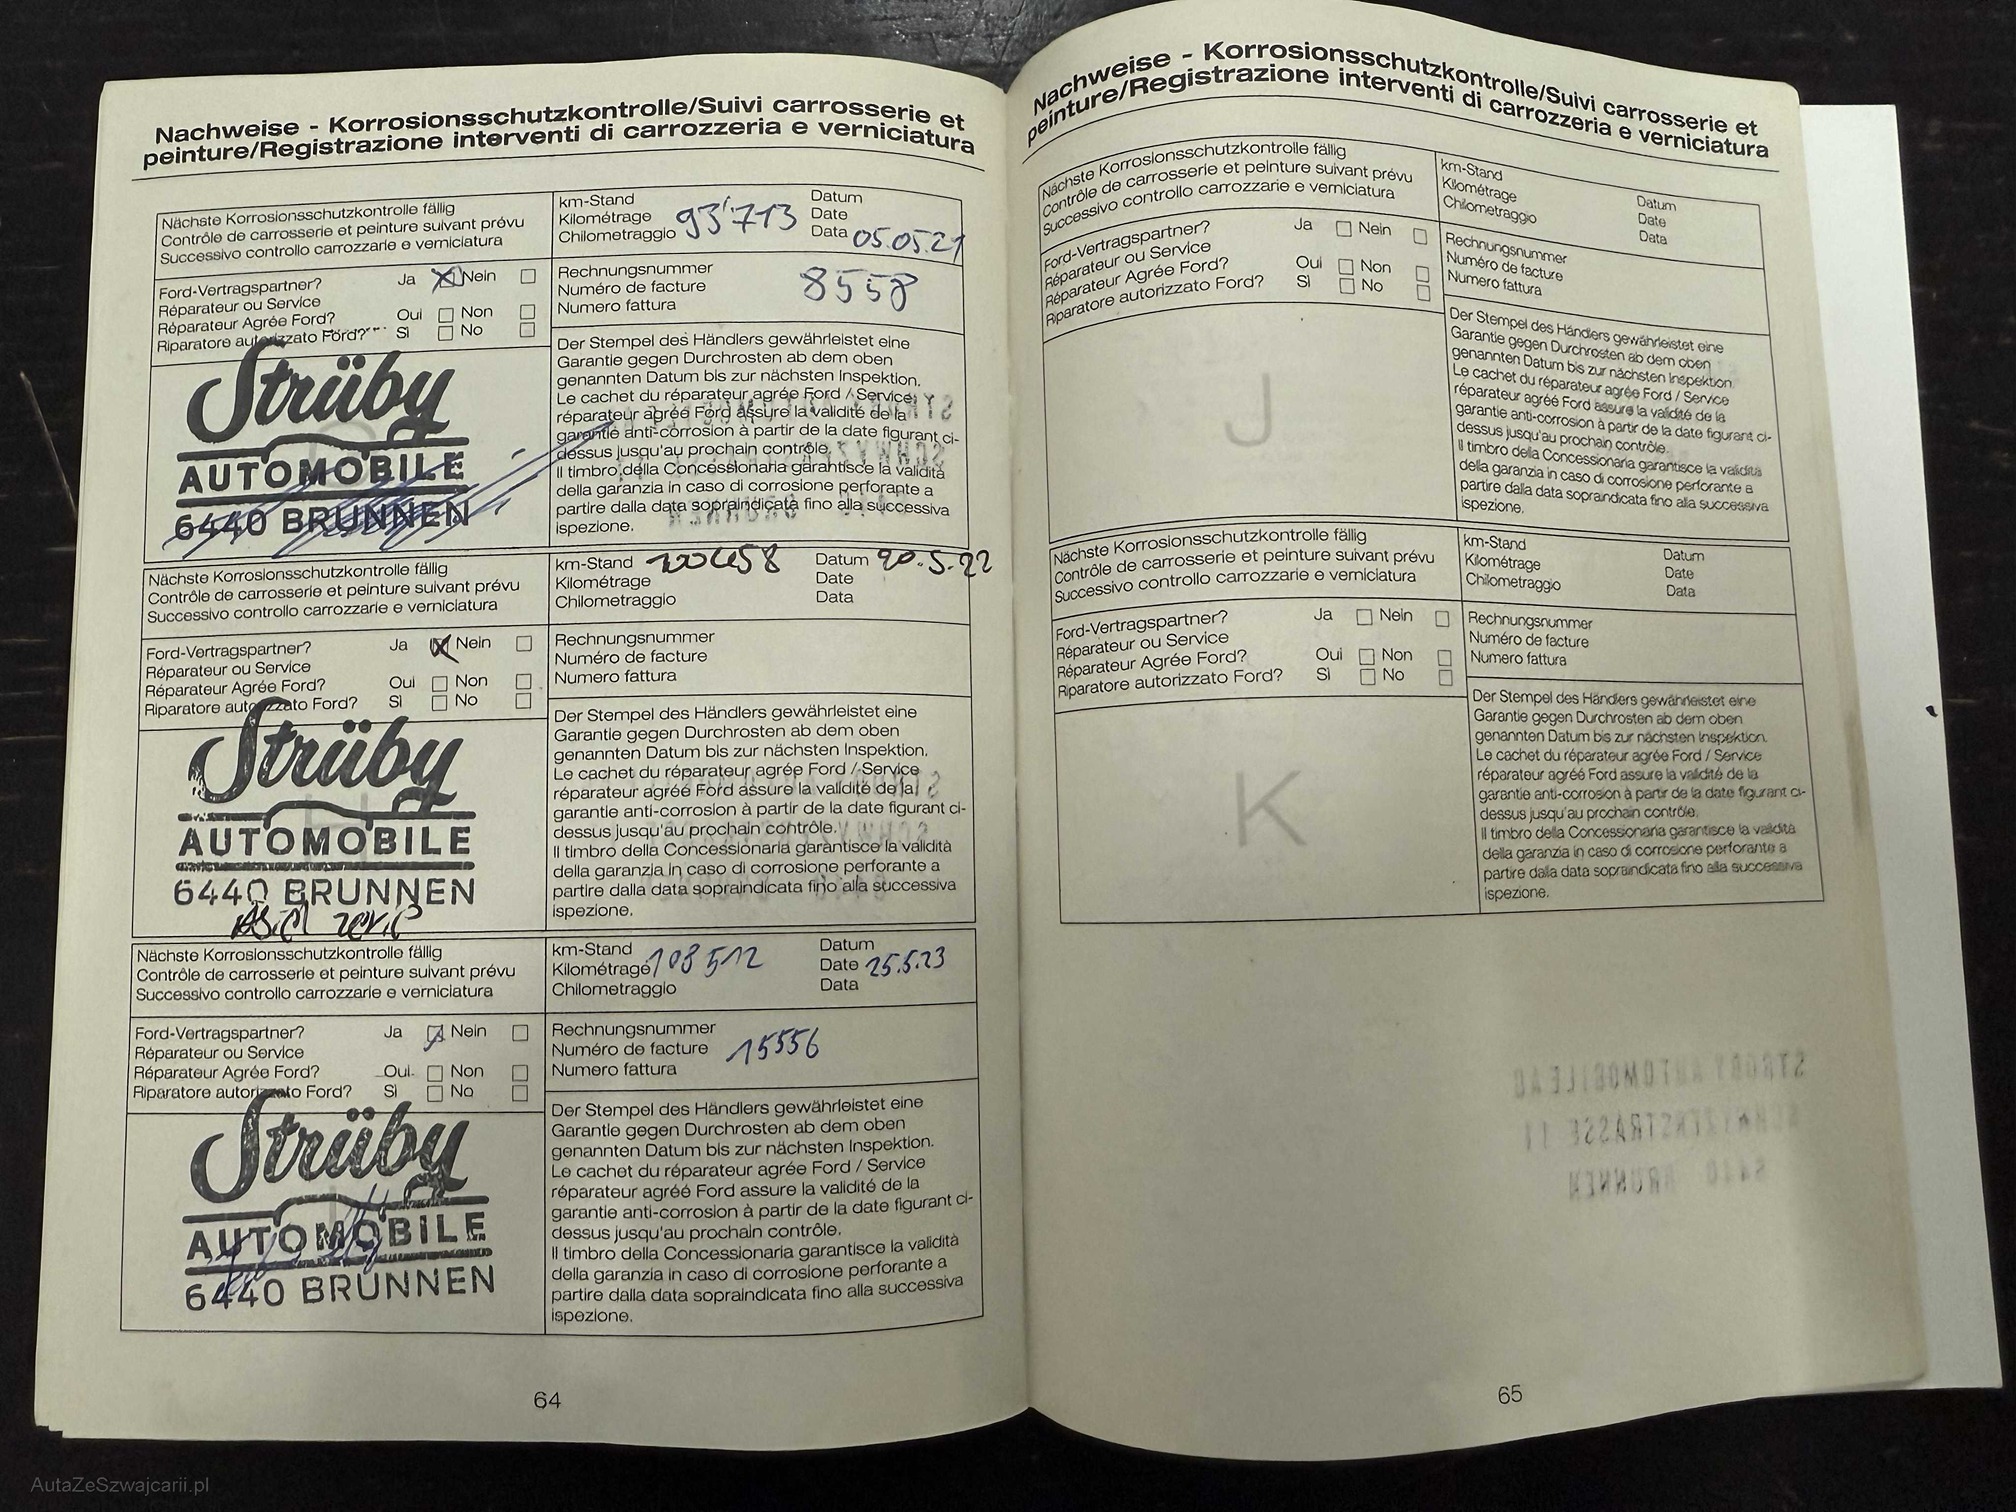 Nachweise - Korrosionsschutzkontrolle/Suivi carrosserie et
peinture/Registrazione interventi di carrozzeria e verniciatura
Nächste Korrosionsschutzkontrolle fällig
Contrôle de carrosserie et peinture suivant prévu
Successivo controllo carrozzarie e verniciatura
km-Stand
Kilométrage
Chilometraggio
93'713
Datum
Date
Data
05.05.21
Ford-Vertragspartner?
Réparateur ou Service
Réparateur Agrée Ford?
Riparatore autorizzato Ford?
Ja Nein
Oui Non
Sì No
Rechnungsnummer
Numéro de facture
Numero fattura
8558
Strüby
AUTOMOBILE
6440 BRUNNEN
Der Stempel des Händlers gewährleistet eine
Garantie gegen Durchrosten ab dem oben
genannten Datum bis zur nächsten Inspektion.
Le cachet du réparateur agrée Ford / Service
réparateur agréé Ford assure la validité de la
garantie anti-corrosion à partir de la date figurant ci-
dessus jusqu'au prochain contrôle.
Il timbro della Concessionaria garantisce la validità
della garanzia in caso di corrosione perforante a
partire dalla data sopraindicata fino alla successiva
ispezione.
Nächste Korrosionsschutzkontrolle fällig
Contrôle de carrosserie et peinture suivant prévu
Successivo controllo carrozzarie e verniciatura
km-Stand
Kilométrage
Chilometraggio
Datum
Date
Data
20.5.22
Ford-Vertragspartner?
Réparateur ou Service
Réparateur Agrée Ford?
Riparatore autorizzato Ford?
Ja Nein
Oui Non
Sì No
Rechnungsnummer
Numéro de facture
Numero fattura
Strüby
AUTOMOBILE
6440 BRUNNEN
Der Stempel des Händlers gewährleistet eine
Garantie gegen Durchrosten ab dem oben
genannten Datum bis zur nächsten Inspektion.
Le cachet du réparateur agrée Ford / Service
réparateur agréé Ford assure la validité de la
garantie anti-corrosion à partir de la date figurant ci-
dessus jusqu'au prochain contrôle.
Il timbro della Concessionaria garantisce la validità
della garanzia in caso di corrosione perforante a
partire dalla data sopraindicata fino alla successiva
ispezione.
Nächste Korrosionsschutzkontrolle fällig
Contrôle de carrosserie et peinture suivant prévu
Successivo controllo carrozzarie e verniciatura
km-Stand
Kilométrage
Chilometraggio
108512
Datum
Date
Data
25.5.23
Ford-Vertragspartner?
Réparateur ou Service
Réparateur Agrée Ford?
Riparatore autorizzato Ford?
Ja Nein
Oui Non
Sì No
Rechnungsnummer
Numéro de facture
Numero fattura
15556
Strüby
AUTOMOBILE
6440 BRUNNEN
Der Stempel des Händlers gewährleistet eine
Garantie gegen Durchrosten ab dem oben
genannten Datum bis zur nächsten Inspektion.
Le cachet du réparateur agrée Ford / Service
réparateur agréé Ford assure la validité de la
garantie anti-corrosion à partir de la date figurant ci-
dessus jusqu'au prochain contrôle.
Il timbro della Concessionaria garantisce la validità
della garanzia in caso di corrosione perforante a
partire dalla data sopraindicata fino alla successiva
ispezione.
64
Nachweise - Korrosionsschutzkontrolle/Suivi carrosserie et
peinture/Registrazione interventi di carrozzeria e verniciatura
Nächste Korrosionsschutzkontrolle fällig
Contrôle de carrosserie et peinture suivant prévu
Successivo controllo carrozzarie e verniciatura
km-Stand
Kilométrage
Chilometraggio
Datum
Date
Data
Ford-Vertragspartner?
Réparateur ou Service
Réparateur Agrée Ford?
Riparatore autorizzato Ford?
Ja Nein
Oui Non
Sì No
Rechnungsnummer
Numéro de facture
Numero fattura
J
Der Stempel des Händlers gewährleistet eine
Garantie gegen Durchrosten ab dem oben
genannten Datum bis zur nächsten Inspektion.
Le cachet du réparateur agrée Ford / Service
réparateur agréé Ford assure la validité de la
garantie anti-corrosion à partir de la date figurant ci-
dessus jusqu'au prochain contrôle.
Il timbro della Concessionaria garantisce la validità
della garanzia in caso di corrosione perforante a
partire dalla data sopraindicata fino alla successiva
ispezione.
Nächste Korrosionsschutzkontrolle fällig
Contrôle de carrosserie et peinture suivant prévu
Successivo controllo carrozzarie e verniciatura
km-Stand
Kilométrage
Chilometraggio
Datum
Date
Data
Ford-Vertragspartner?
Réparateur ou Service
Réparateur Agrée Ford?
Riparatore autorizzato Ford?
Ja Nein
Oui Non
Sì No
Rechnungsnummer
Numéro de facture
Numero fattura
K
Der Stempel des Händlers gewährleistet eine
Garantie gegen Durchrosten ab dem oben
genannten Datum bis zur nächsten Inspektion.
Le cachet du réparateur agrée Ford / Service
réparateur agréé Ford assure la validité de la
garantie anti-corrosion à partir de la date figurant ci-
dessus jusqu'au prochain contrôle.
Il timbro della Concessionaria garantisce la validità
della garanzia in caso di corrosione perforante a
partire dalla data sopraindicata fino alla successiva
ispezione.
STRÜBY AUTOMOBILE AG
SCHWYZERSTRASSE 11
6440 BRUNNEN
65
AutaZeSzwajcarii.pl